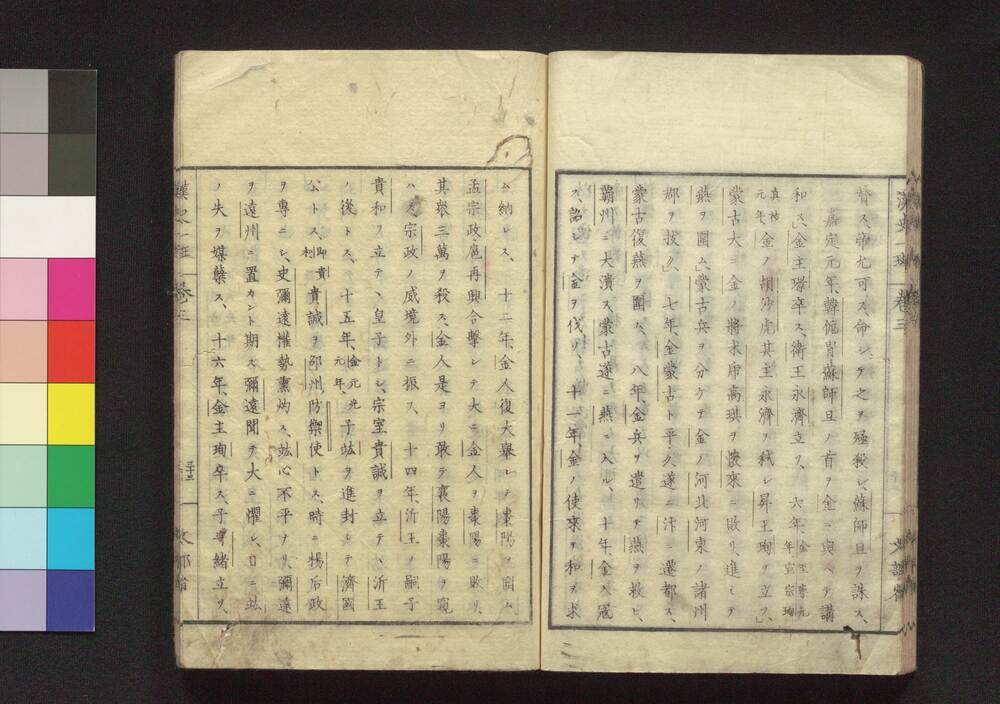 督ス、帝允可ス、命シテ之ヲ殛殺シ、蘇師旦ヲ誅ス、
嘉定元年、韓侂冑蘇師旦ノ首ヲ金ニ與ヘテ講
和ス、金主璟卒ス、衛王永濟立ツ、 六年、金宣宗珣
真祐元年、金ノ胡沙虎其主永濟ヲ弑シ昇王珣ヲ立ツ、
蒙古大ニ金ノ將朮虎高琪ヲ懐來ニ敗リ、進ミテ
燕ヲ圍ム、蒙古兵ヲ分ケテ金ノ河北河東ノ諸州
郡ヲ拔ク、 七年、金蒙古ト平久遂ニ汴ニ遷都ス、
蒙古復燕ヲ圍ム、 八年、金兵ヲ遣リテ燕ヲ救ヒ、
覇州ニ大潰ス、蒙古遂ニ燕ニ入ル、 十年、金入寇
ス、詔シテ金ヲ伐ツ、 十一年、金ノ使來リ和ヲ求
ム納レス、 十二年、金人復大擧シテ棗陽ヲ圍ム
孟宗政扈再興合擊シテ大ニ金人ヲ棗陽ニ敗リ、
其衆三萬ヲ殺ス、金人是ヨリ敢テ襄陽棗陽ヲ窺
ハス、宗政ノ威境外ニ振ス、 十四年、沂王ノ嗣子
貴和ヲ立テ、皇子トシ、宗室貴誠ヲ立テ、沂王
ノ後トス、 十五年、金元光元年、子竑ヲ進封シテ濟國
公トス、 貴誠ヲ邵州防禦使トス、時ニ楊后政
ヲ專ニシ、史彌遠權勢熏灼ス、竑心不平ナリ、彌遠
ヲ遠州ニ置カント期ス彌遠聞テ大ニ懼レ、日ニ竑
ノ失ヲ媒蘗ス、 十六年、金主珣卒ス、子守緒立ツ、
卷三
文部省